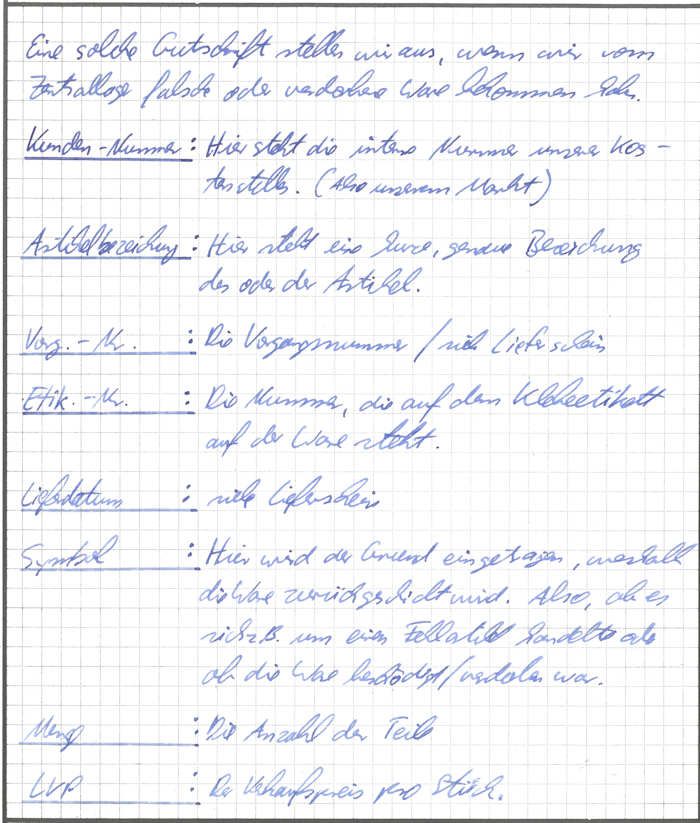 Eine solche Gutschrift stellen wir aus, wenn wir vom
Zentrallager falsche oder verdorbene Ware bekommen haben.
Kunden-Nummer: Hier steht die interne Nummer unserer Kos-
tenstelle. (Also unserem Markt)
Artikelbezeichnung: Hier steht eine kurze, genaue Bezeichnung
des oder der Artikel.
Vorg.-Nr. : Die Vorgangsnummer / siehe Lieferschein
Etik.-Nr. : Die Nummer, die auf dem Klebeetikett
auf der Ware steht.
Lieferdatum : siehe Lieferschein
Symbol : Hier wird der Grund eingetragen, weshalb
die Ware zurückgeschickt wird. Also, ob es
sich z.B. um einen Fehlartikel handelte oder
ob die Ware beschädigt/verdorben war.
Menge : Die Anzahl der Teile
LVP : Der Verkaufspreis pro Stück.